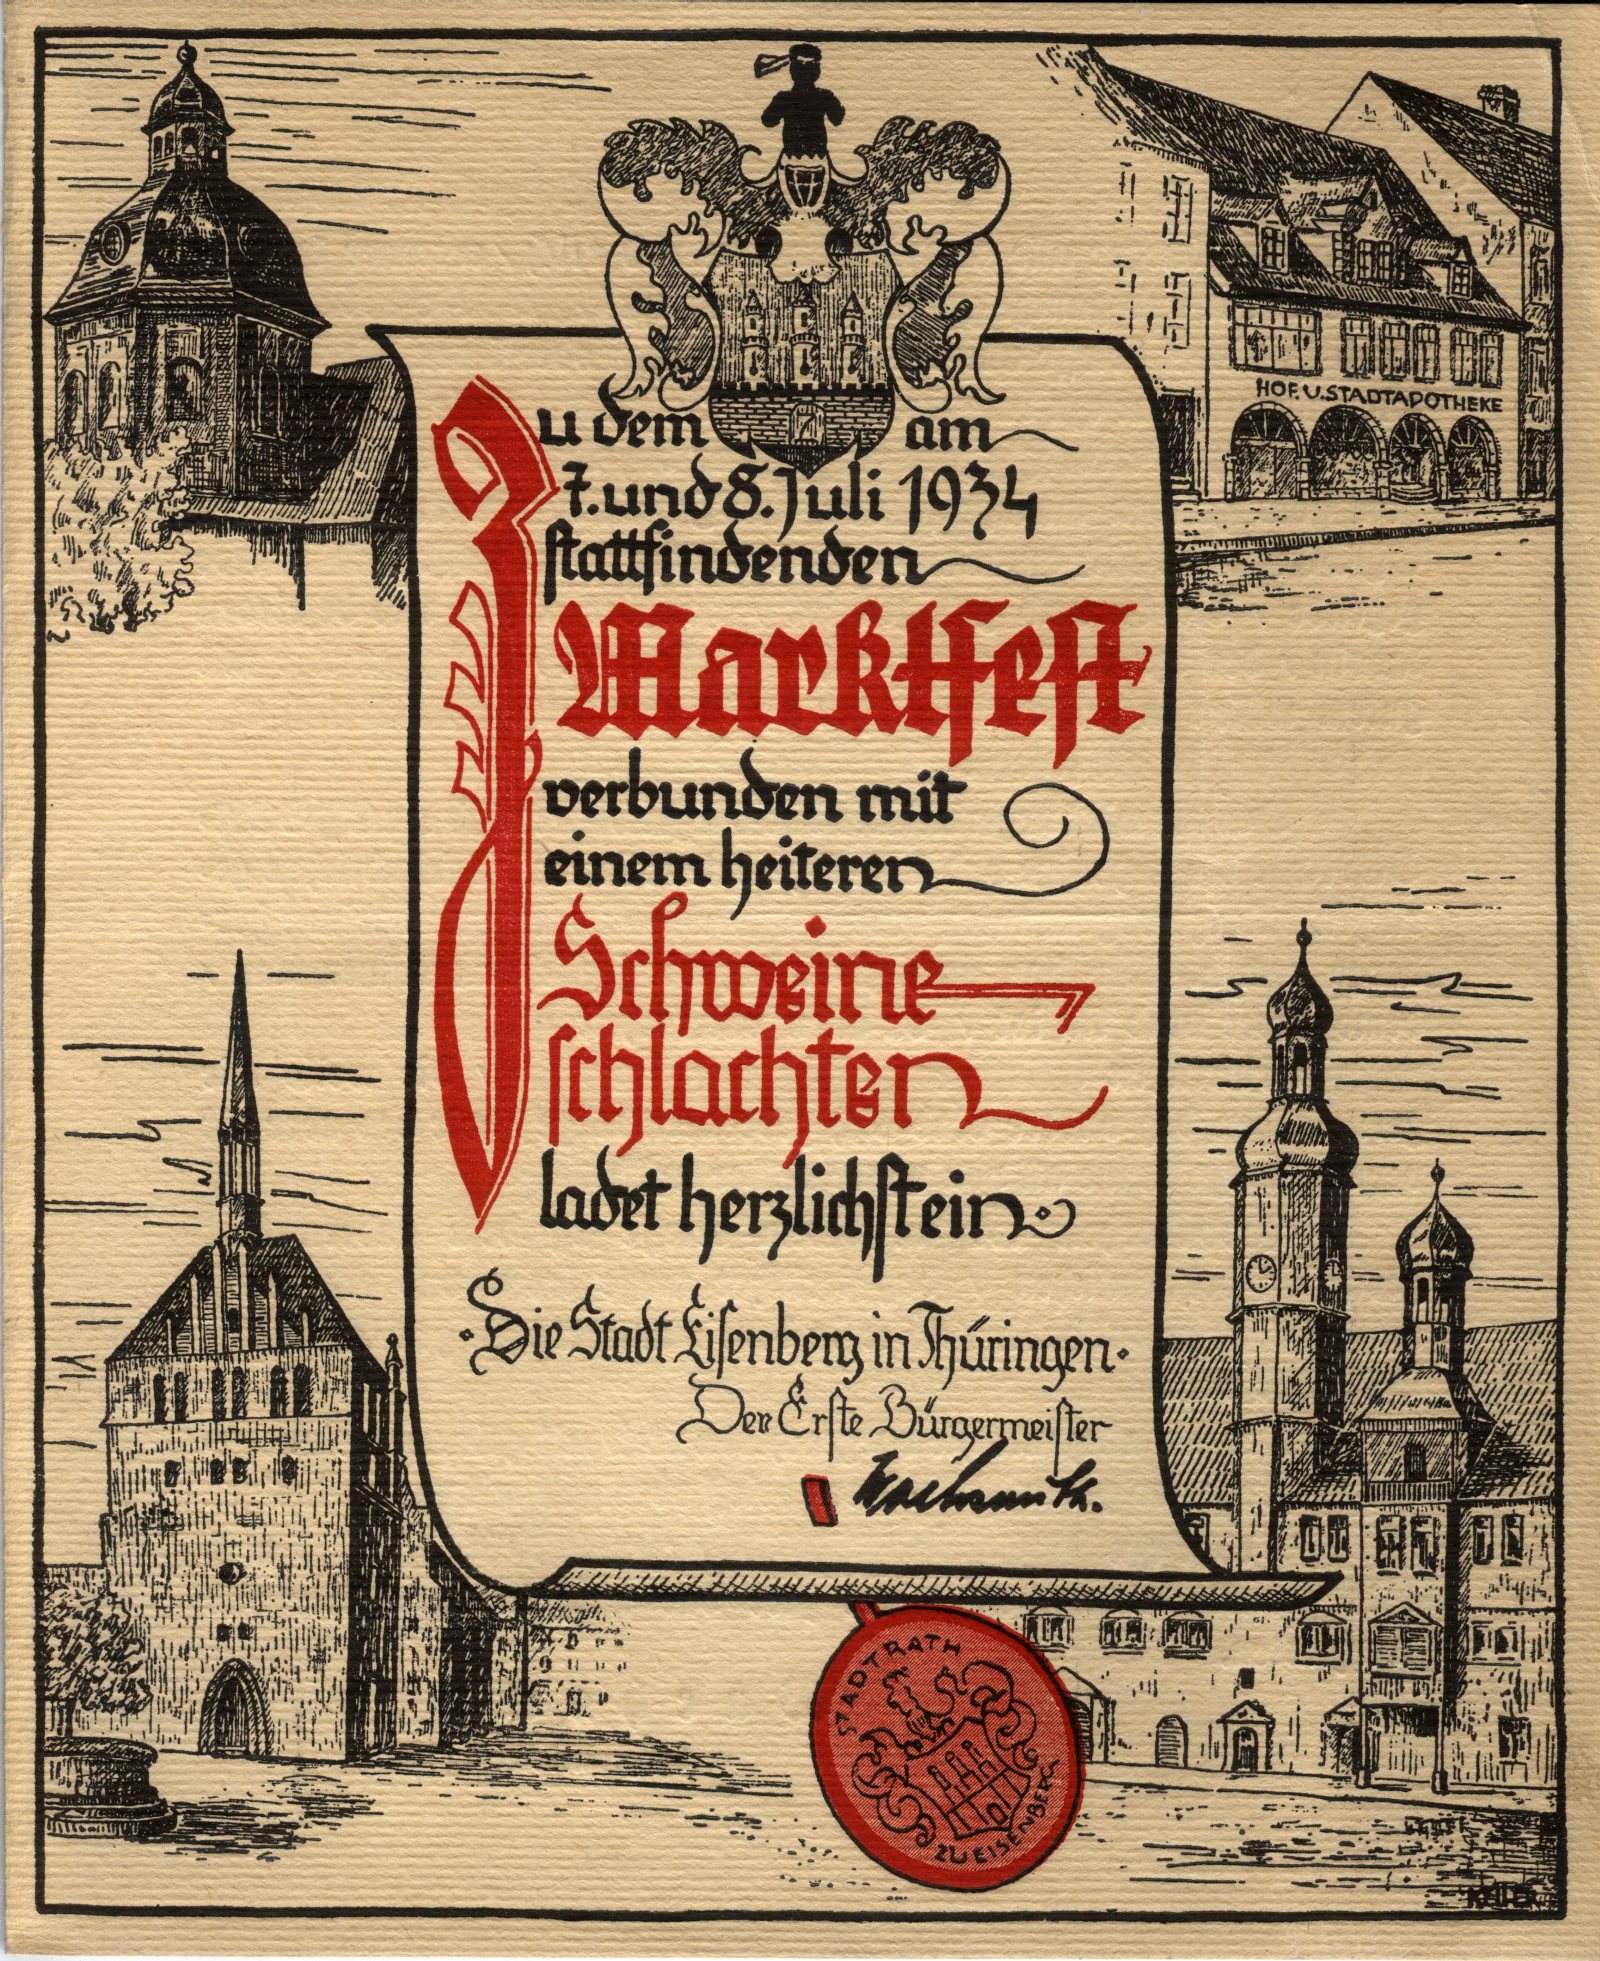 HOF. U. STADTAPOTHEKE
Zu dem am
7. und 8. Juli 1934
stattfindenden
Marktfest
verbunden mit
einem heiteren
Schweine
schlachten
ladet herzlichst ein
Die Stadt Eisenberg in Thüringen
Der Erste Bürgermeister
STADTRATH
ZU EISENBERG